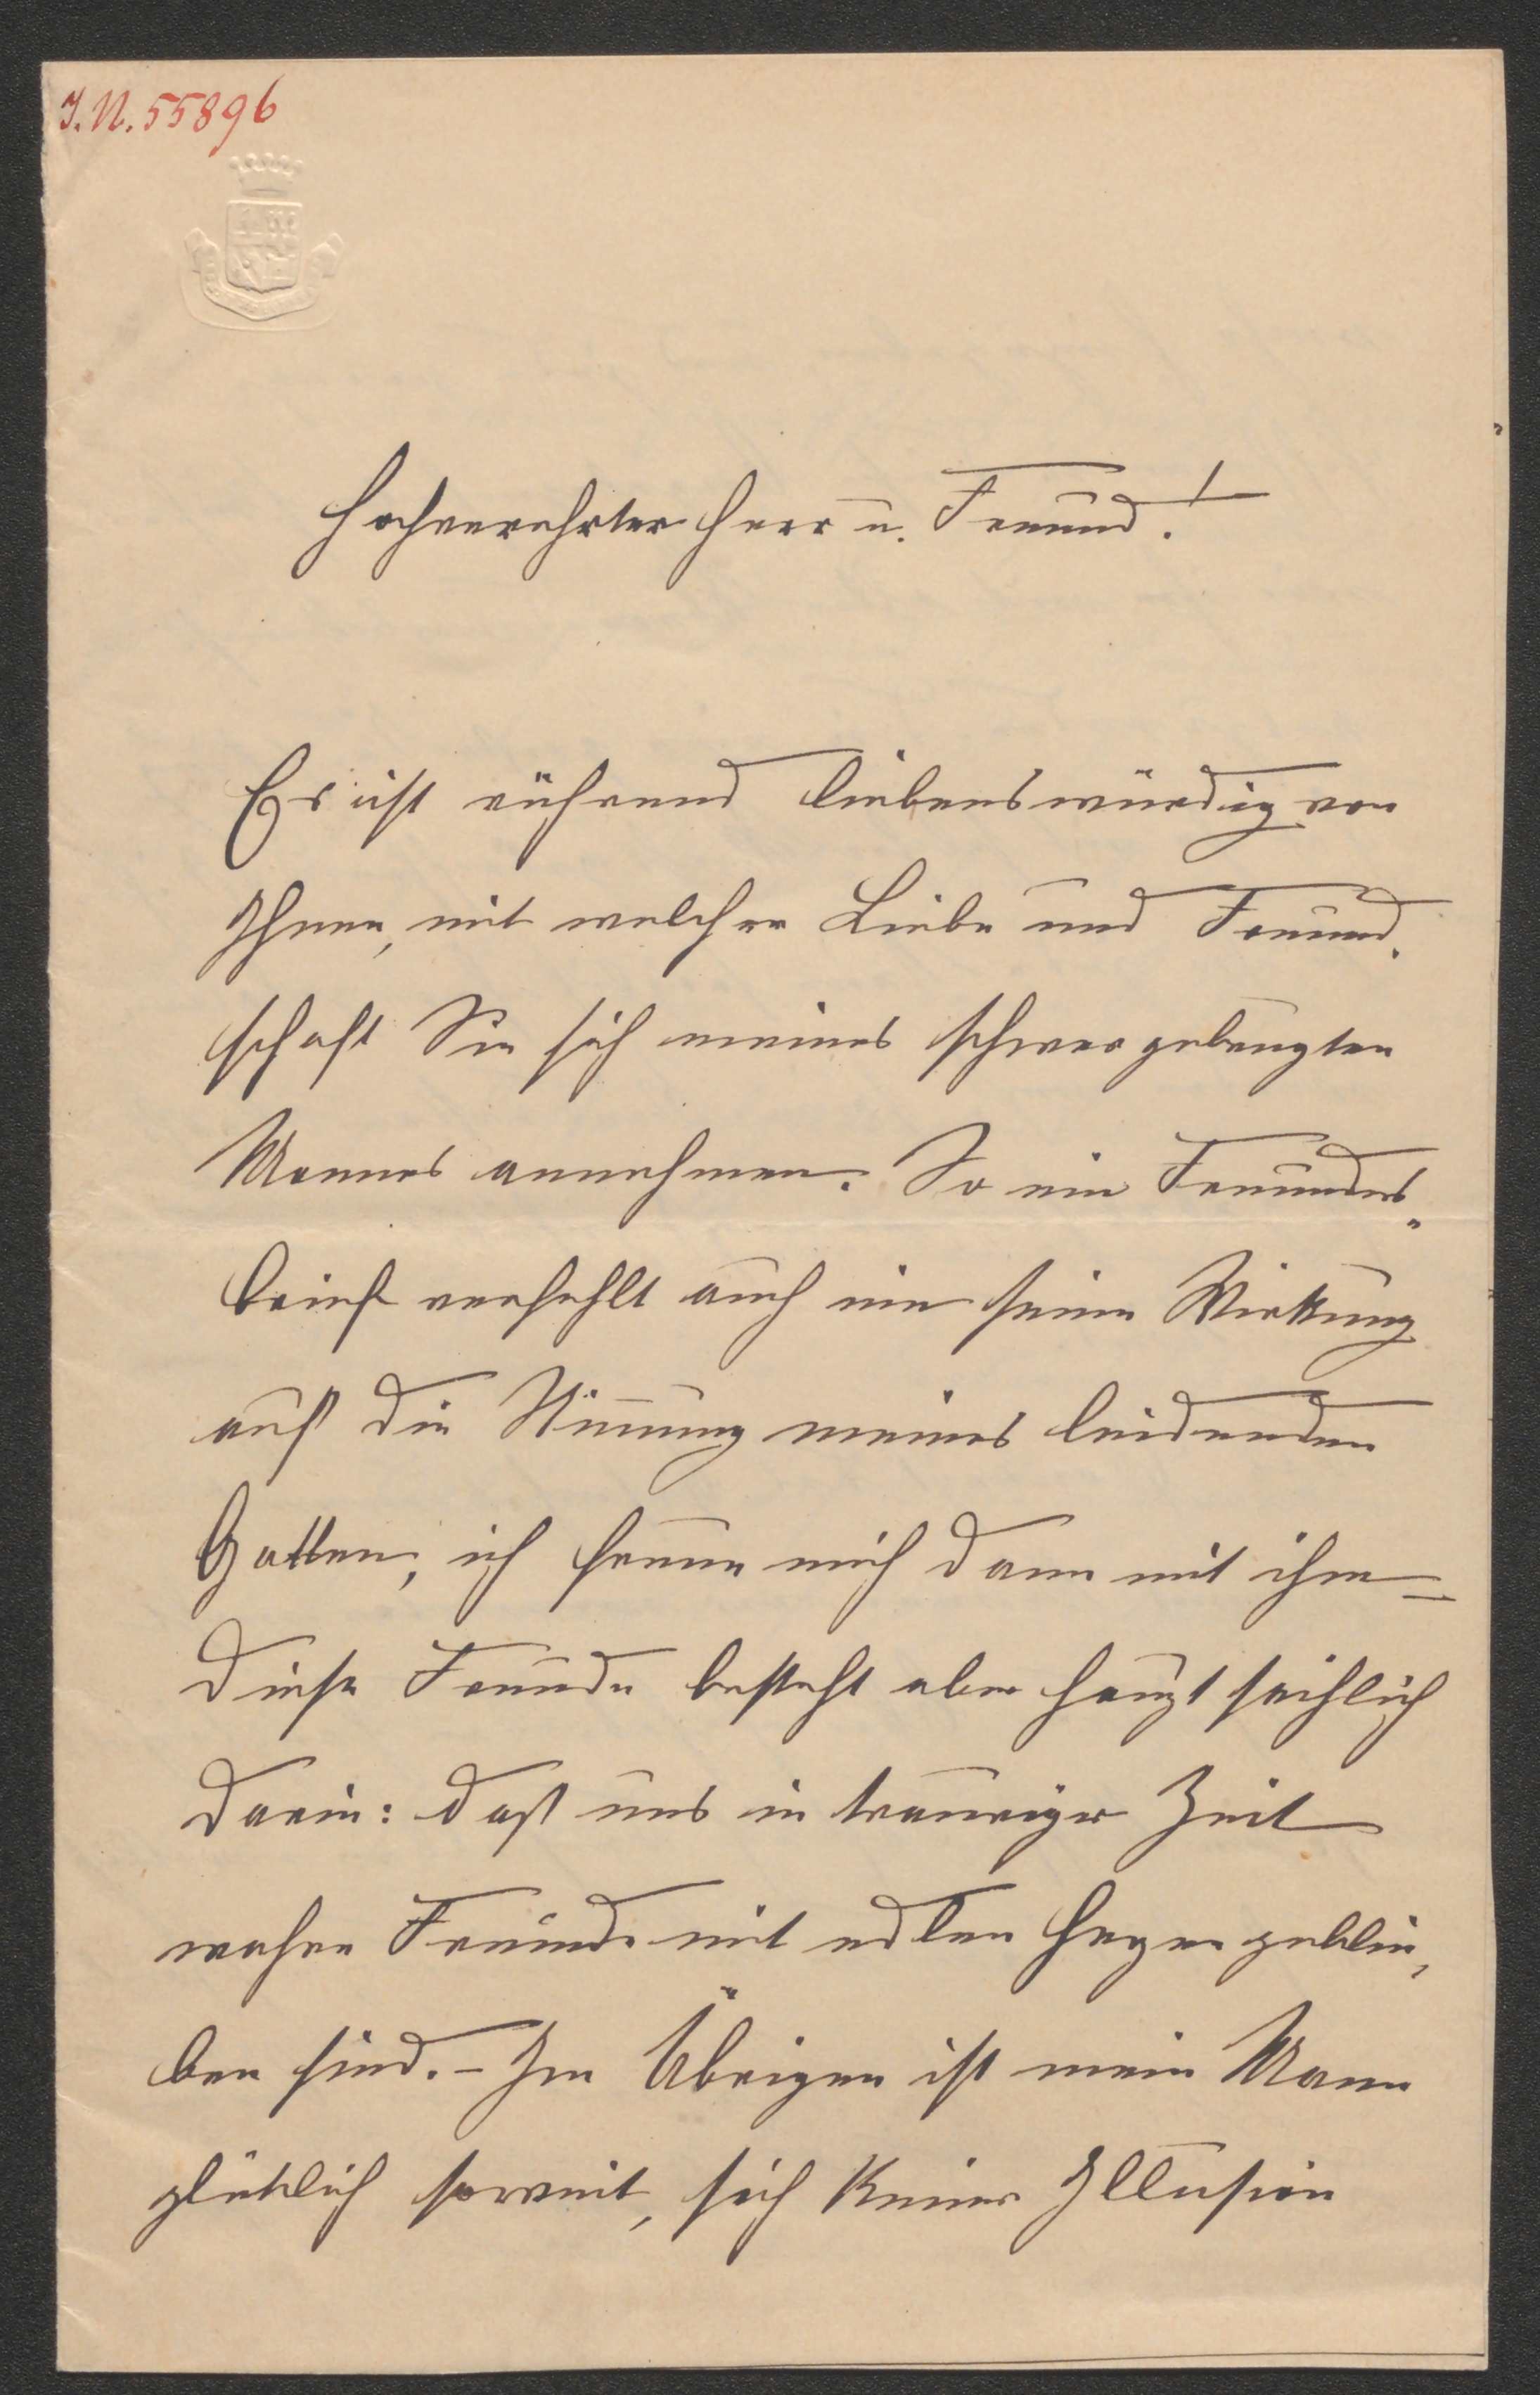 I.N. 55896
Hochverehrter Herr u. Freund!
Es ist rührend liebenswürdig von
Ihnen, mit welcher Liebe und Freund-
schaft Sie sich meines schwergebeugten
Mannes annehmen. So ein Freundes-
brief verfehlt auch nie seine Wirkung
auf die Stimmung meines leidenden
Gatten, ich freue mich dann mit ihm –
diese Freude besteht aber hauptsächlich
darin: daß uns in trauriger Zeit
wahre Freunde mit edlen Herzen geblie-
ben sind. – Im Übrigen ist mein Mann
glücklich soweit, sich keiner Illusion